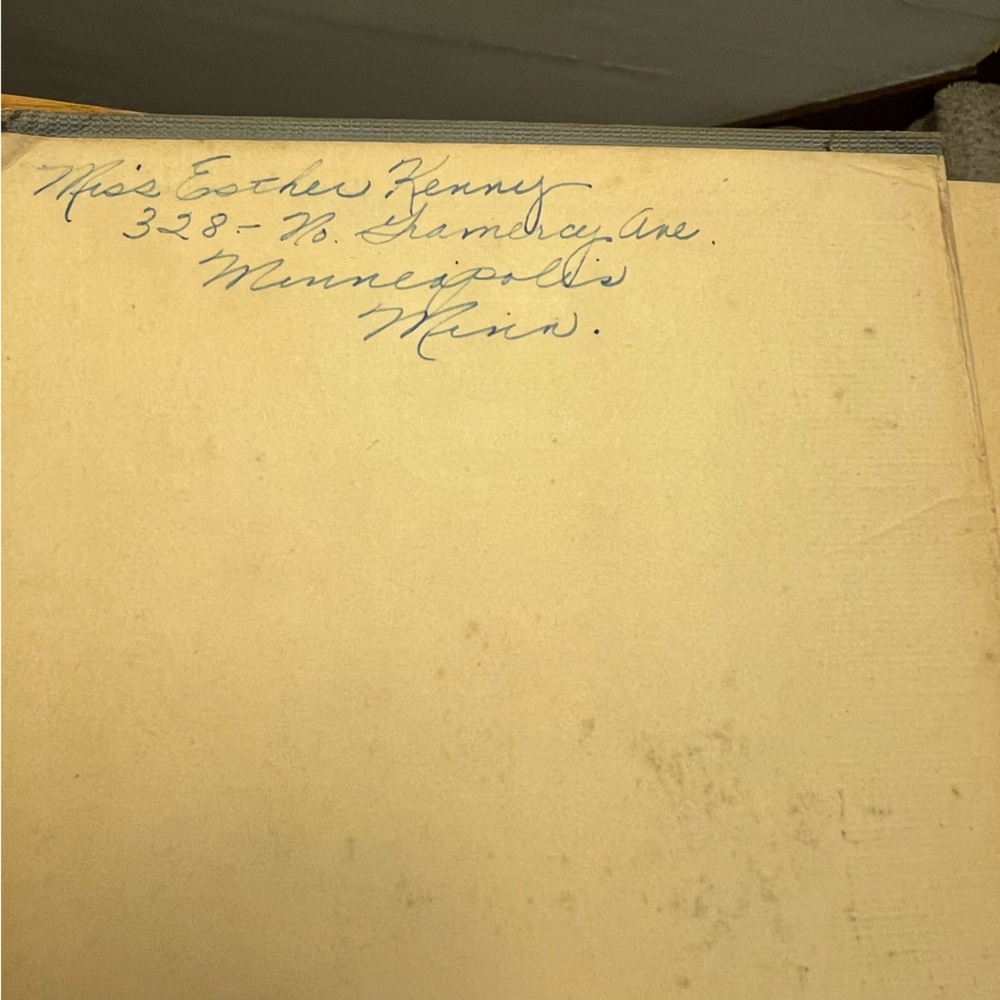 Miss Esther Kenny
328- No. Gramercy Ave.
Minneapolis
Minn.